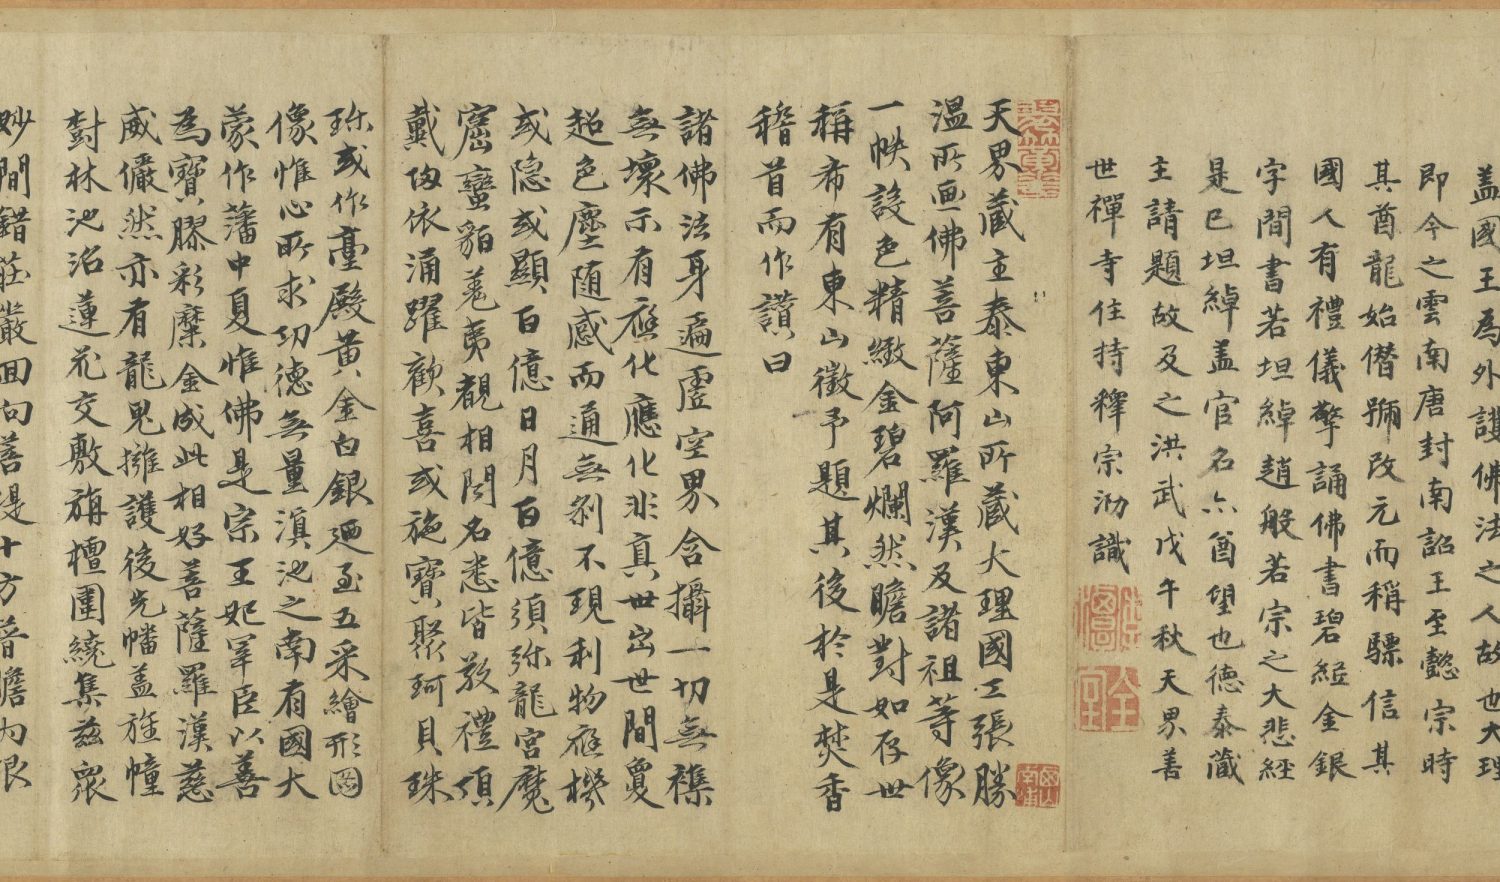 蓋國王為外護佛法之人故也大理
即今之雲南唐封南詔王至懿宗時
其酋龍始僭號改元而稱驃信其
國人有禮儀擎誦佛書碧紙金銀
字間書若坦綽趙般若宗之大悲經
是已坦綽蓋官名亦酋望也德泰藏
主請題故及之洪武戊午秋天界善
世禪寺住持釋宗泐識
天界藏主泰東山所藏大理國工張勝
溫所画佛菩薩阿羅漢及諸祖等像
一帙設色精緻金碧爛然瞻對如存世
稱希有東山徵予題其後於是焚香
稽首而作讚曰
諸佛法身遍虛空界含攝一切無襍
無壞示有應化應化非真世出世間夐
超色塵随感而通無剎不現利物應機
或隐或顯百億日月百億須弥龍宮魔
窟蠻貊羗夷覩相聞名悉皆敬禮頂
戴歸依涌躍歡喜或施寶聚珂貝珠
珎或作臺殿黄金白銀廼至五采繪形圖
像惟心所求功德無量滇池之南有國大
蒙作藩中夏惟佛是宗王妃宰臣以善
為寶膠彩糜金成此相好菩薩羅漢慈
威儼然亦有龍鬼擁護後先幡盖旌幢
對林池沼蓮花交敷旃檀圍繞集兹衆
妙間錯莊嚴回向菩提十方普瞻